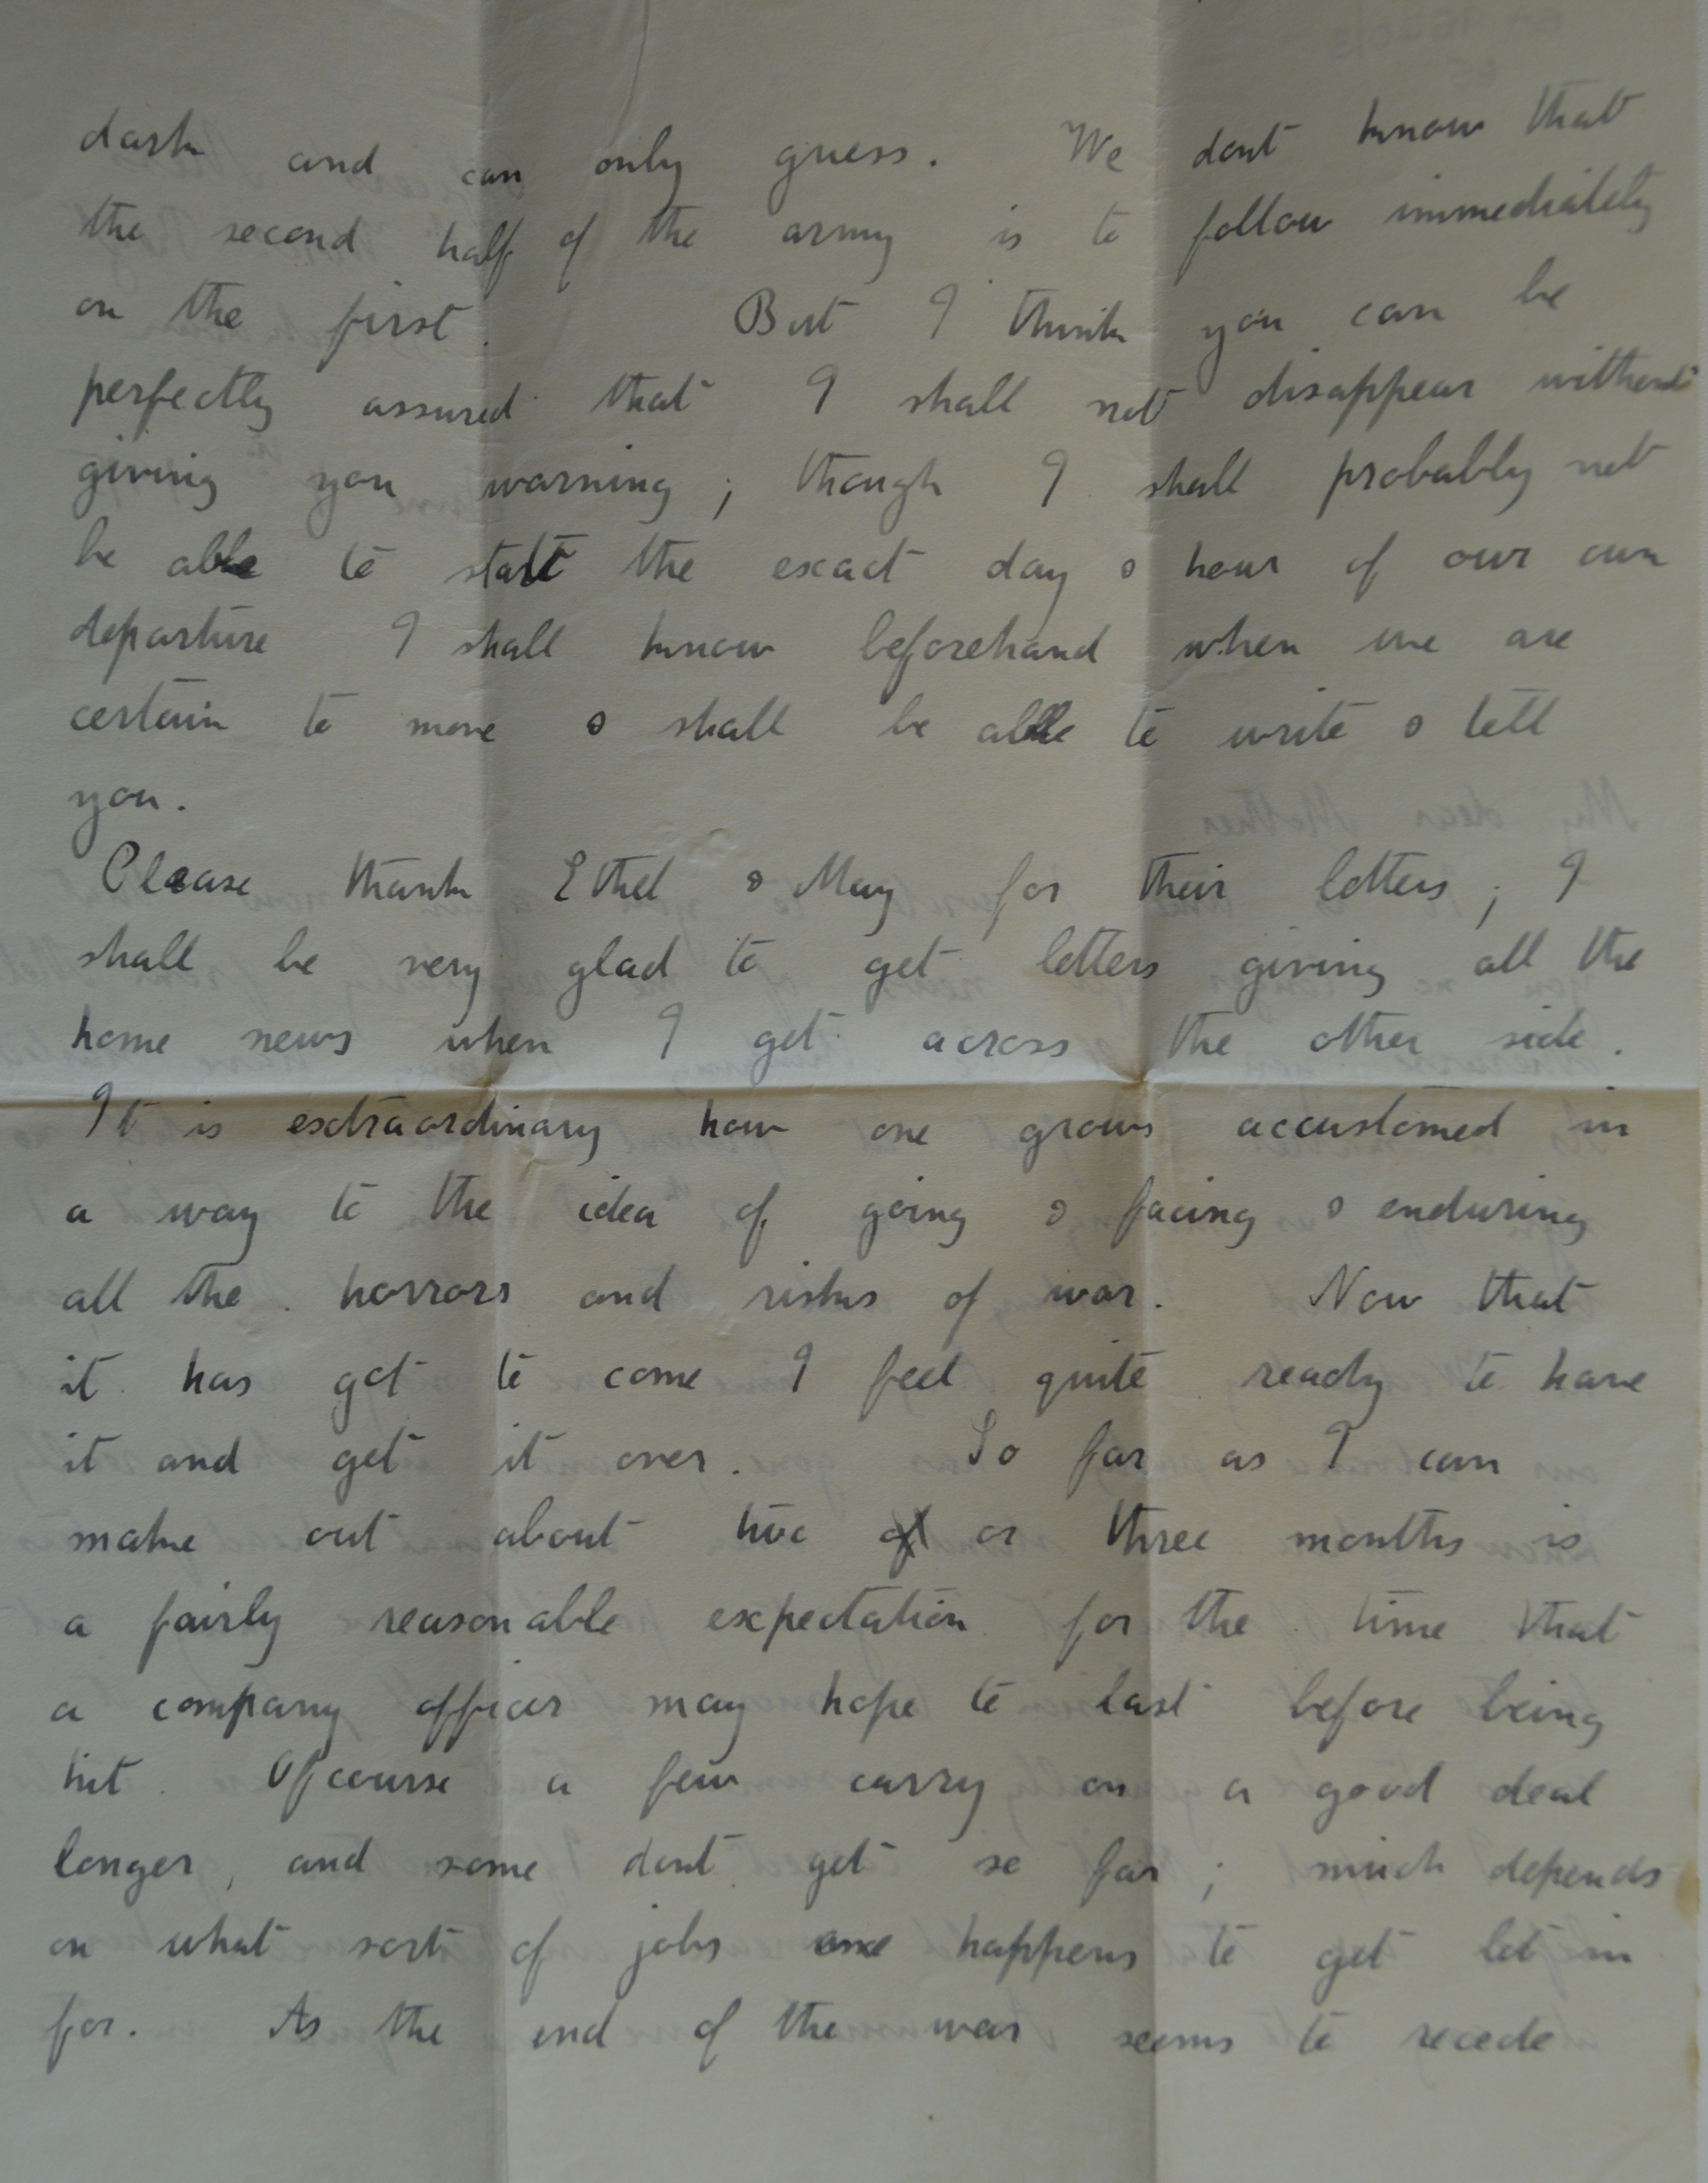 dark and can only guess. We dont know that
the second half of the army is to follow immediately
on the first. But I think you can be
perfectly assured that I shall not disappear without
giving you warning; though I shall probably not
be able to state the exact day & hour of our own
departure I shall know beforehand when we are
certain to move & shall be able to write & tell
you.
Please thank Ethel & May for their letters; I
shall be very glad to get letters giving all the
home news when I get across the other side.
It is extraordinary how one grows accustomed in
a way to the idea of going & facing & enduring
all the horrors and risks of war. Now that
it has got to come I feel quite ready to have
it and get it over. So far as I can
make out about two of or three months is
a fairly reasonable expectation for the time that
a company officer may hope to last before being
hit. Ofcourse a few carry on a good deal
longer, and some dont get so far; much depends
on what sort of jobs one happens to get let in
for. As the end of the war seems to recede